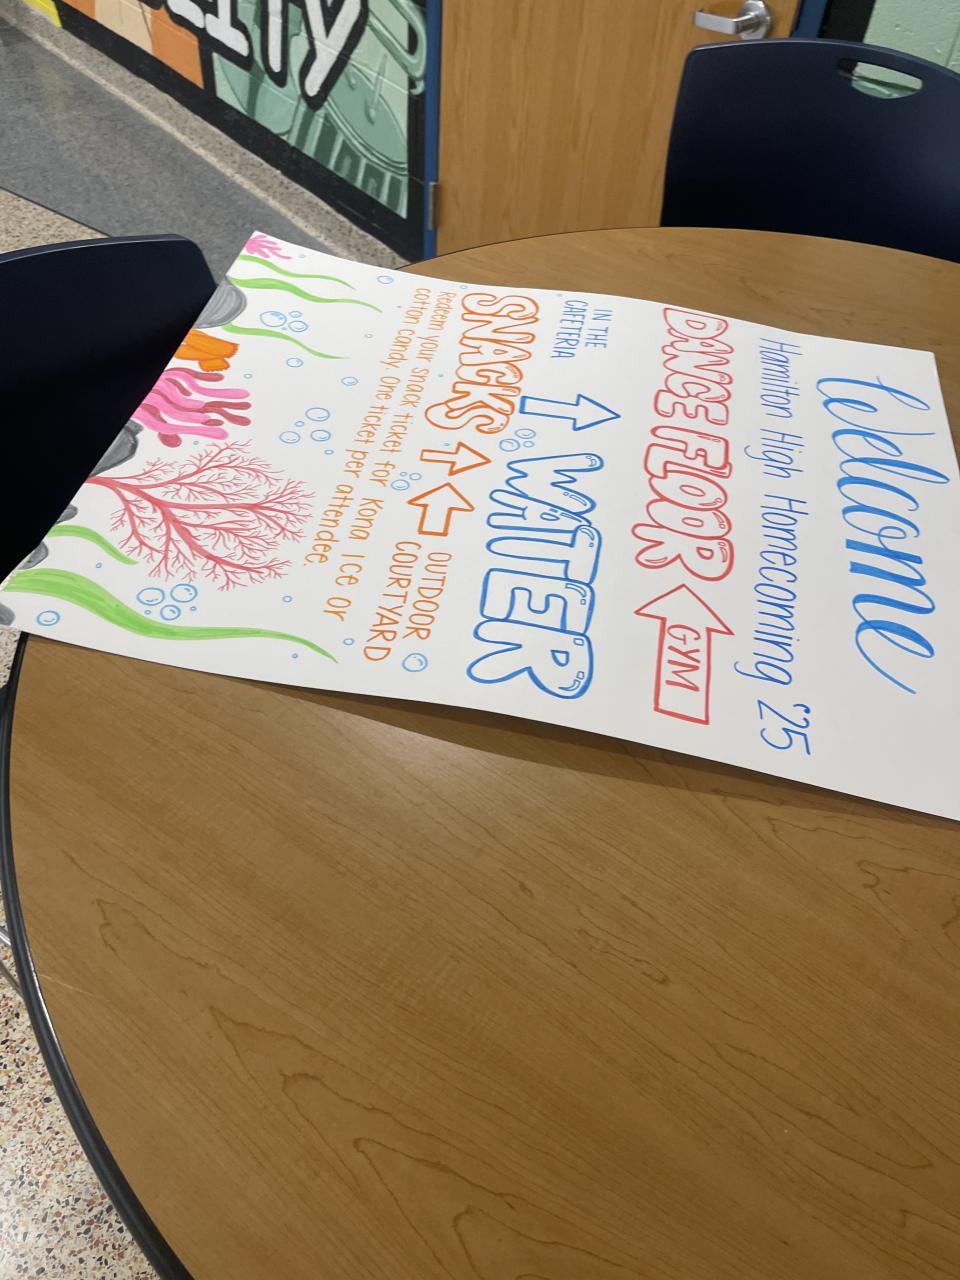 Welcome
Hamilton High Homecoming '25
DANCE FLOOR GYM
IN THE
CAFETERIA
WATER
SNACKS
OUTDOOR
COURTYARD
Redeem your snack ticket for Kona Ice or
cotton candy. One ticket per attendee.